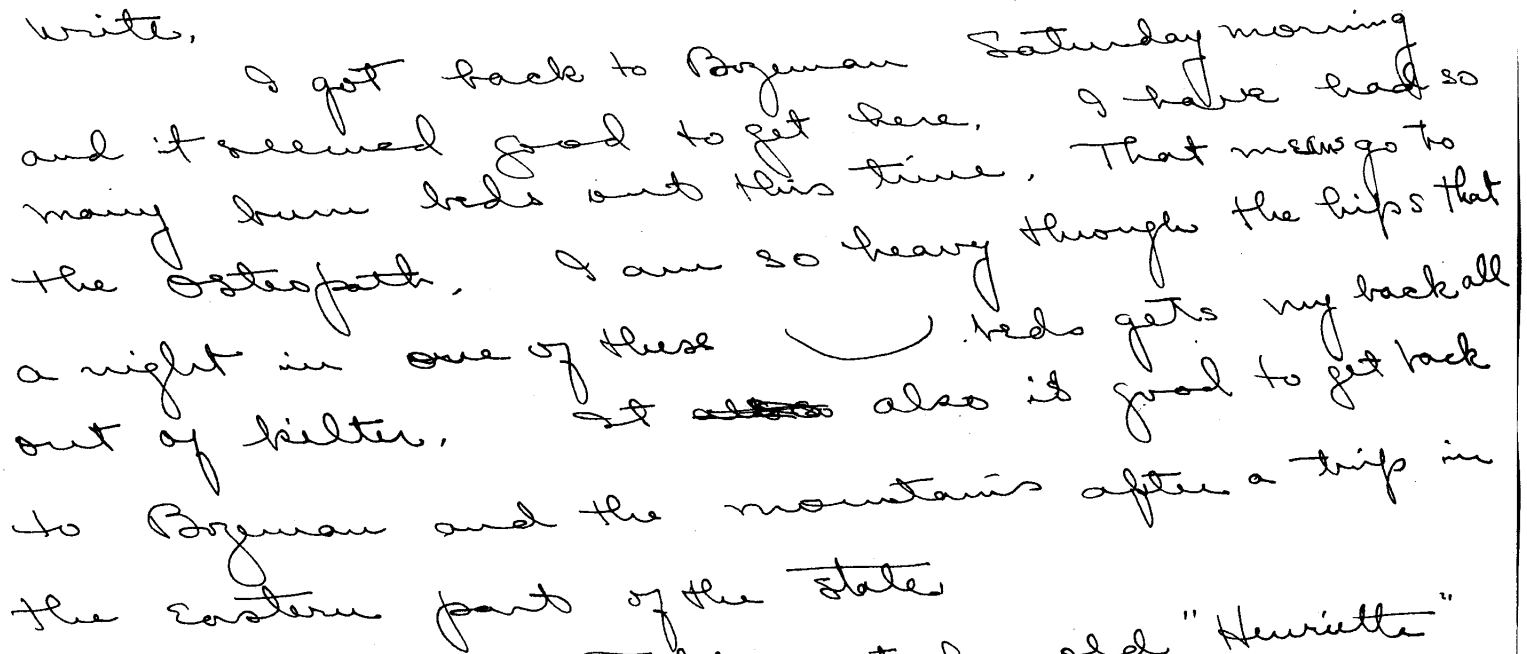 write.
I got back to Bozeman Saturday morning
and it seemed good to get here. I have had so
many bum beds out this time. That means go to
the Osteopath. I am so heavy through the hips that
a night in one of these beds gets my back all
out of kilter. It also is good to get back
to Bozeman and the mountains after a trip in
the Eastern part of the state.
old "Henriette"